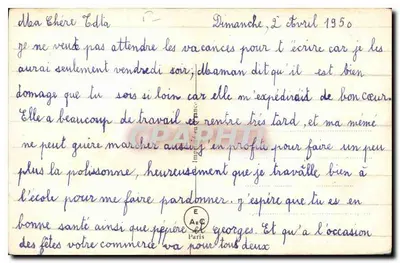 Ma Chère Edta Dimanche, 2 Avril 1950
je ne veux pas attendre les vacances pour t'écrire car je les
aurai seulement vendredi soir, Maman dit qu'il est bien
domage que tu sois si loin car elle m'expédirait de bon cœur.
Elle a beaucoup de travail et rentre très tard, et ma mémé
ne peut guère marcher aussi j'en profite pour faire un peu
plus la polissonne, heureusement que je travaille bien à
l'école pour me faire pardonner. j'espère que tu es en
bonne santé ainsi que pépère et georges. Et qu'a l'occasion
des fêtes votre commerce va pour tous deux
E
A C
Paris